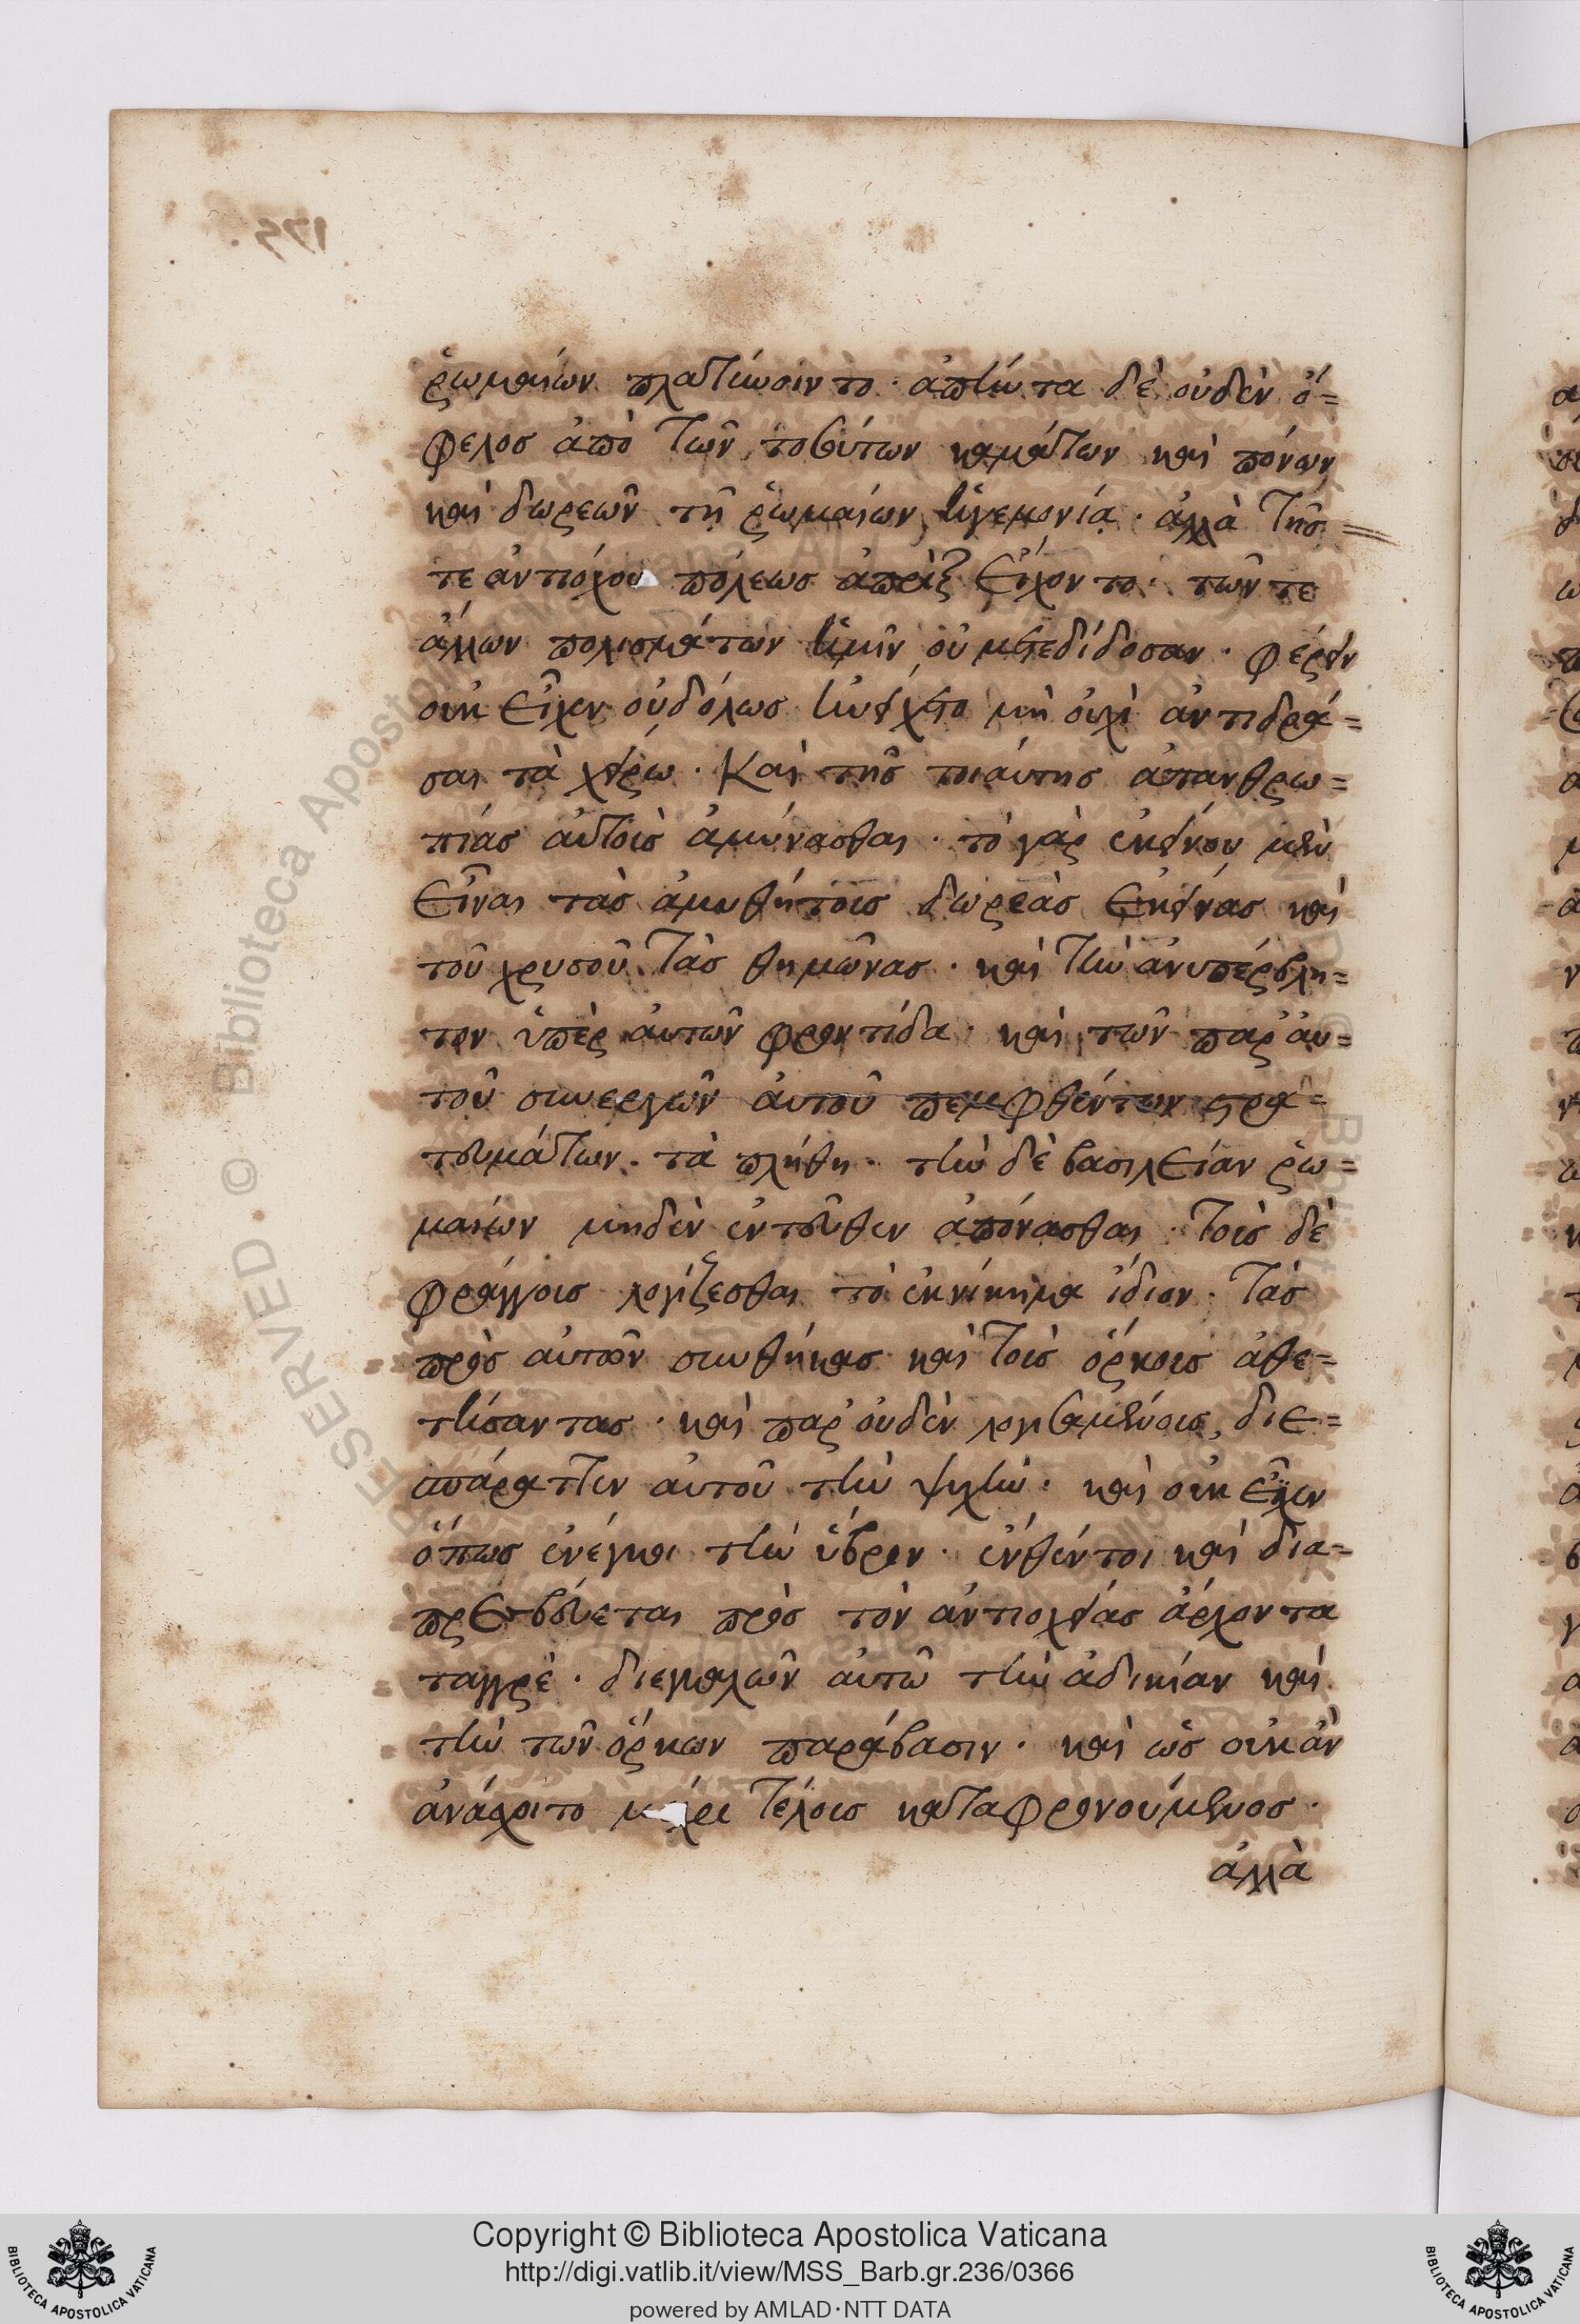 ῥωμαίων πλατύνοιντο· ἀπήντα δὲ οὐδὲν ὄ=
φελος ἀπὸ τῶν τοσούτων καμάτων καὶ πόνων
καὶ δωρεῶν τῆ ῥωμαίων ἡγεμονία· ἀλλὰ τῆς
τε ἀντιόχου πόλεως ἀπρὶξ εἴχοντο· τῶν τε
ἄλλων πολισμάτων ἡμῖν οὐ μετεδίδοσαν· φέρειν
οὐκ εἶχεν οὐδόλως ἠνείχετο μὴ οὐχὶ ἀντιδρᾶ=
σαι τὰ χείρω· Καὶ τῆς τοιάυτης ἀπανθρω=
πίας αὐτοὺς ἀμύνασθαι· τὸ γὰρ ἐκείνου μὲν
εἶναι τὰς ἀμυθήτους δωρεὰς ἐκείνας καὶ
τοῦ χρυσοῦ τὰς θημῶνας· καὶ τὴν ἀνυπέρβλη=
τον ὑπὲρ ἀυτῶν φροντίδα· καὶ τῶν παρ ἀυ=
τοῦ συνεργῶν ἀυτοῦ πεμφθέντων στρα=
τευμάτων· τὰ πλήθη· τὴν δὲ βασιλείαν ῥω=
μαίων μηδὲν ἐντεῦθεν ἀπόνασθαι· τοὺς δὲ
φράγγους λογίζεσθαι τὸ ἐκνίκημα ἴδιον· τὰς
πρὸς αὐτὸν συνθήκας καὶ τοὺς ὅρκους ἀθε=
τήσαντας· καὶ παρ' οὐδὲν λογισαμένους, διε=
σπάραττεν ἀυτοῦ τὴν ψυχὴν· καὶ οὐκ εἶχεν
ὅπως ἐνέγκοι τὴν ὕβριν· ἐνθέντοι καὶ δια=
πρεσβεύεται πρὸς τὸν ἀντιοχείας ἄρχοντα
ταγγρὲ· διεγκαλῶν αὐτῶ τὴν ἀδικίαν καὶ
τὴν τῶν ὅρκων παράβασιν· καὶ ὡς οὐκ ἀν
ἀνάσχοιτο μέχρι τέλους καταφρονούμενος·
ἀλλὰ
Copyright © Biblioteca Apostolica Vaticana
http://digi.vatlib.it/view/MSS_Barb.gr.236/0366
powered by AMLAD·NTT DATA